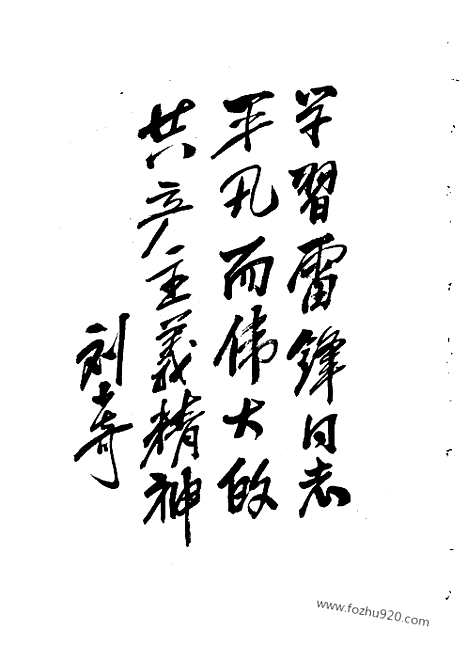 学習雷鋒同志
平凡而伟大的
共产主義精神
刘少奇
www.fozhu920.com